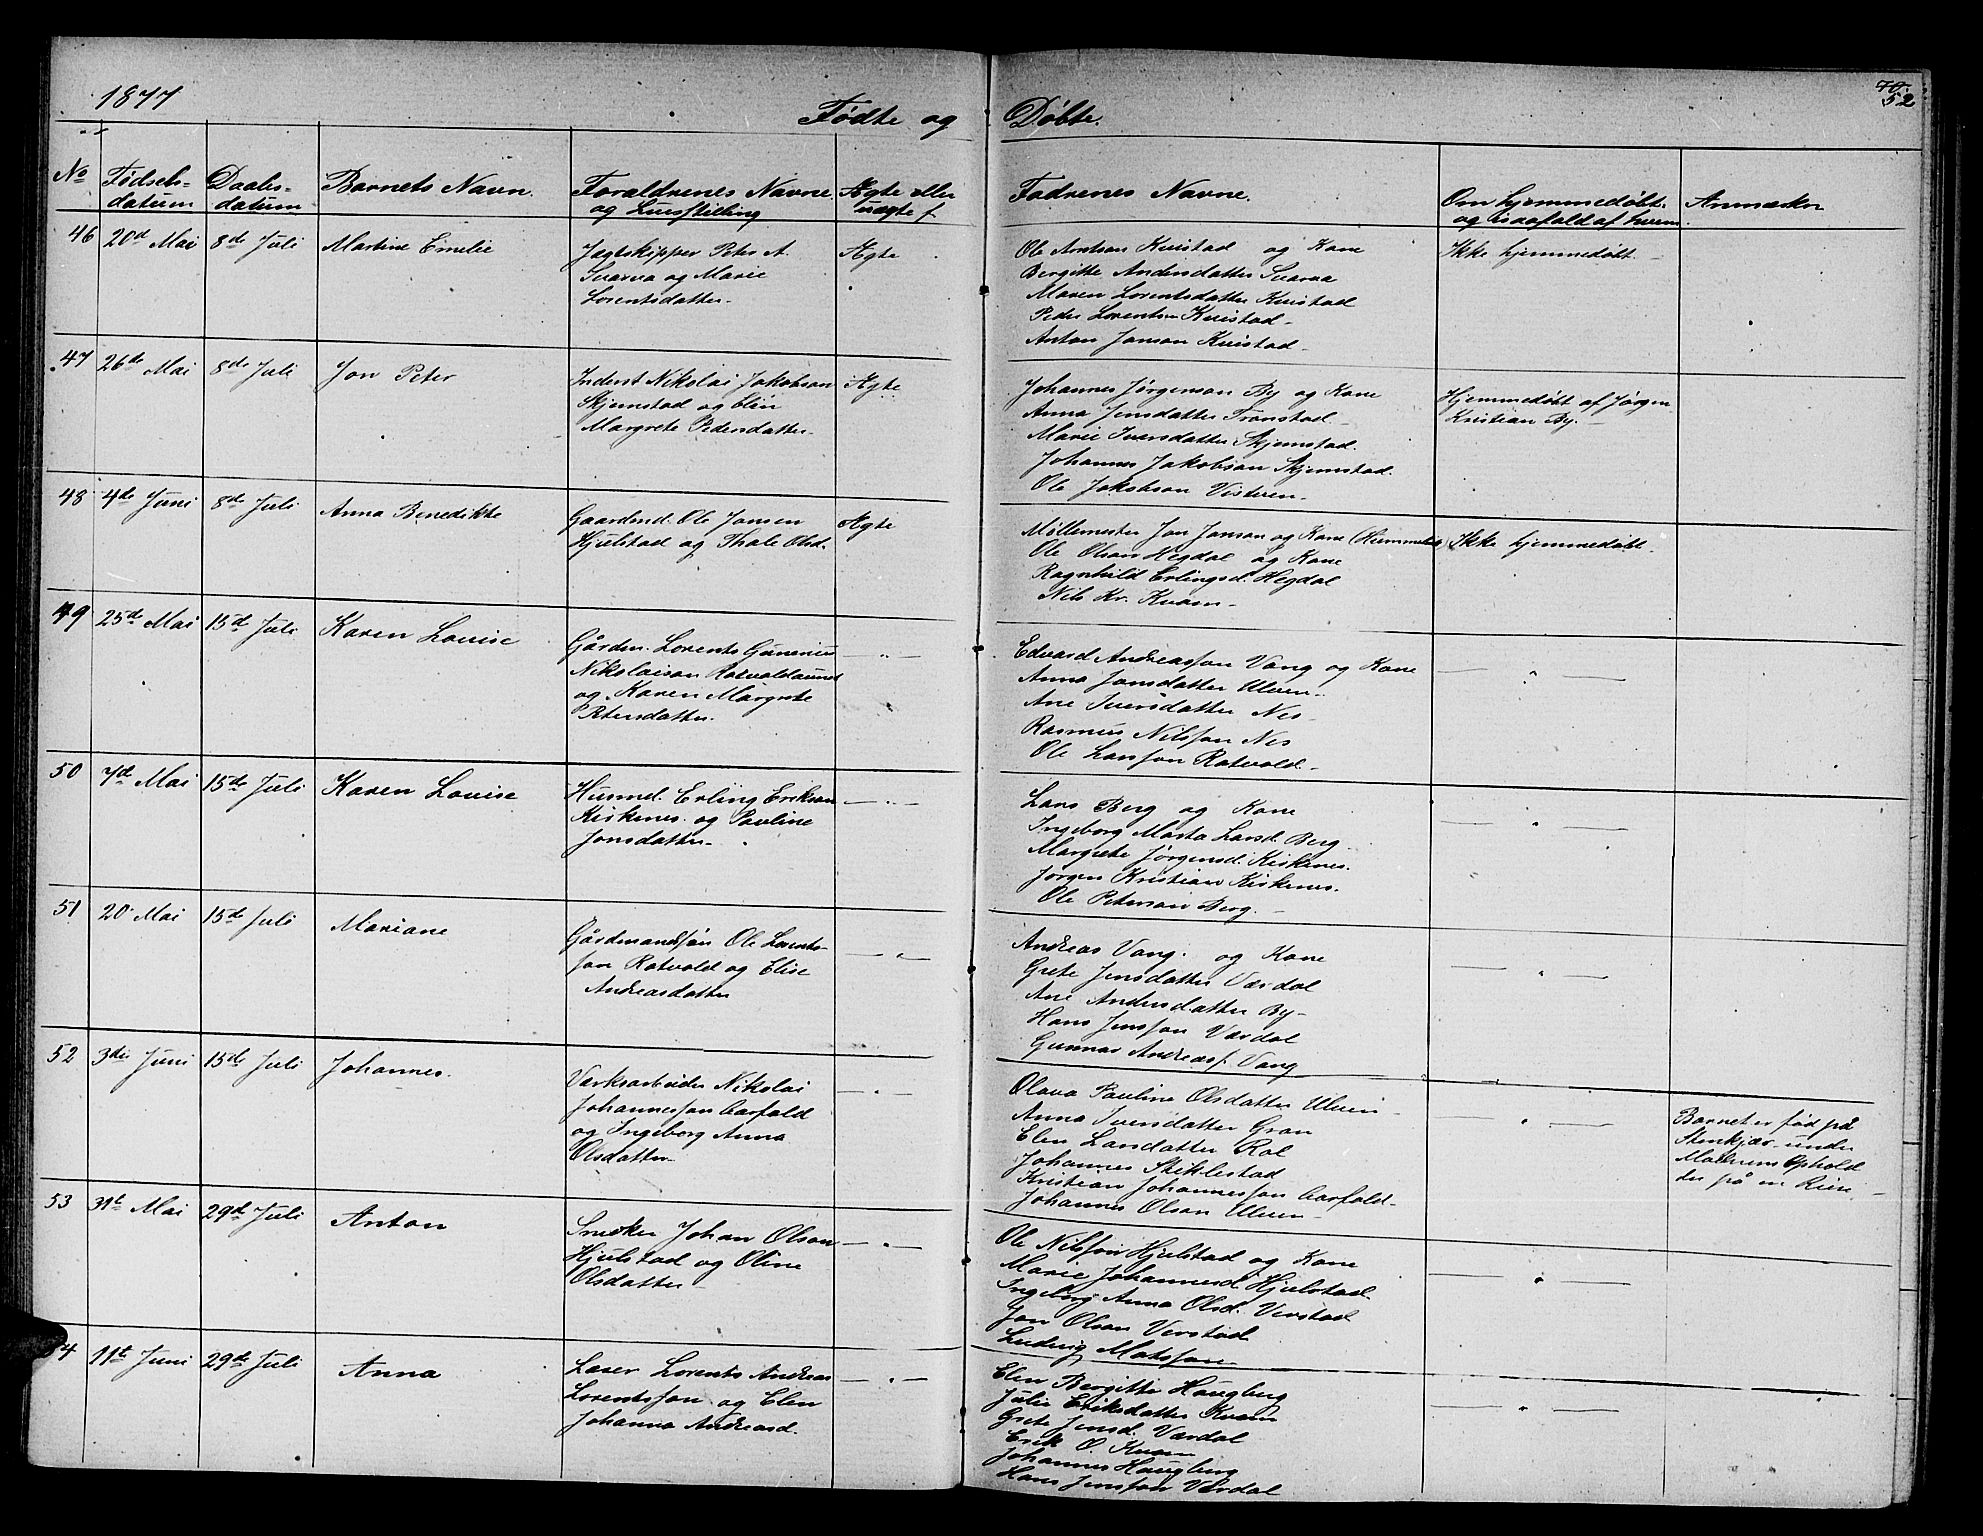 1877
70.
52
Fødte og Døbte.
No
Fødsels-
datum
Daabs-
datum
Barnets Navn.
Forældrenes Navne
og Livsstilling
Ægte eller
uægte f.
Fadrenes Navne.
Om hjemmedøbt
og isaafald af hvem
Anmærkn
46 20d Mai 8d Juli Martine Emelie
Jagtskipper Peter A.
Svarva og Marie
Lorentsdatter.
Ægte
Ole Arntsen Kvistad og Kone
Bergitte Andersdatter Svarva
Maren Lorentsdatter Kvistad
Peder Lorentsen Kvistad
Anton Jonson Kvistad
Ikke hjemmedøbt
47 26de Mai 8de Juli Jon Peter
Inderst Nikolai Jakobson
Skjemstad og Elin
Margrete Pedersdatter
Ægte
Johannes Jørgenson By og Kone
Anna Jensdatter Transtad
Marie Iversdatter Skjemstad.
Johannes Jakobson Skjemstad.
Ole Jakobson Visteren
Hjemmedøbt af Jørgen
Kristian By.
48 4de Juni 8de Juli Anna Benedikte
Gaardmd. Ole Jonsen
Hjulstad og Thale Olsd.
Ægte
Møllemester Jon Jonson og Kone
Ole Olson Hegdal og Kone
Ragnhild Erlingsd. Hegdal
Nils Kr. Kvam
Ikke hjemmedøbt.
49 25de Mai 15de Juli Karen Louise
Gårdm. Lorents Gunerius
Nikolaison Rotvoldaunet
og Karen Margrete
Petersdatter.
— " —
Edvard Andreasson Vang og Kone
Anna Jonsdatter Ulven
Ane Iversdatter Nes
Rasmus Nilsson Nes
Ole Larsson Rotvold
— " —
50 7d Mai 15de Juli Karen Louise
Husmd. Erling Erikson
Kirkenes og Pauline
Jonsdatter
— " —
Lars Berg og Kone
Ingeborg Marta Larsd. Berg
Margrete Jørgensd. Kirkenes.
Jørgen Kristian Kirkenes.
Ole Peterson Berg
— " —
51 20 Mai 15de Juli Mariane
Gårdmandssøn Ole Lorents-
son Rotvold og Elise
Andreasdatter
— " —
Andreas Vang. og Kone
Grete Jensdatter Værdal
Ane Andersdatter By
Hans Jensson Værdal
Gunnar Andreass. Vang
— " —
52 3die Juni 15de Juli Johannes.
Værksarbeider Nikolai
Johannesson Aarfald
og Ingeborg Anna
Olsdatter
— " —
Olava Pauline Olsdatter Ulven
Anna Iversdatter Gran
Elen Larsdatter Rol
Johannes Stiklestad
Kristian Johannesson Aarfald
Johannes Olson Ulven
" —
Barnet er fød på
Stenkjær under
Moderens Ophold
der på en Reise
53 31t Mai 29de Juli Anton
Snedker Johan Olson
Hjulstad og Oline
Olsdatter
— " —
Ole Nilsson Hjulstad og Kone
Marie Johannesd. Hjulstad
Ingeborg Anna Olsd. Verstad
Jon Olson Verstad
Ludvig Matsson
— " —
4 11t Juni 29de Juli Anna
Laser Lorents Andreas
Lorentsson og Elen
Johanna Andreasd.
— " —
Elen Bergitte Haugberg
Julie Eriksdatter Kvam
Grete Jensd. Værdal
Erik O. Kvam
Johannes Haugberg
Hans Jensson Værdal
— " —